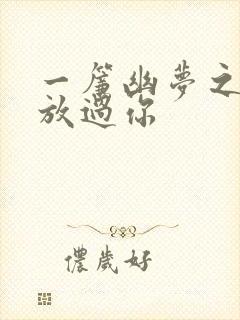 一簾幽夢之
放過你
儂歲好